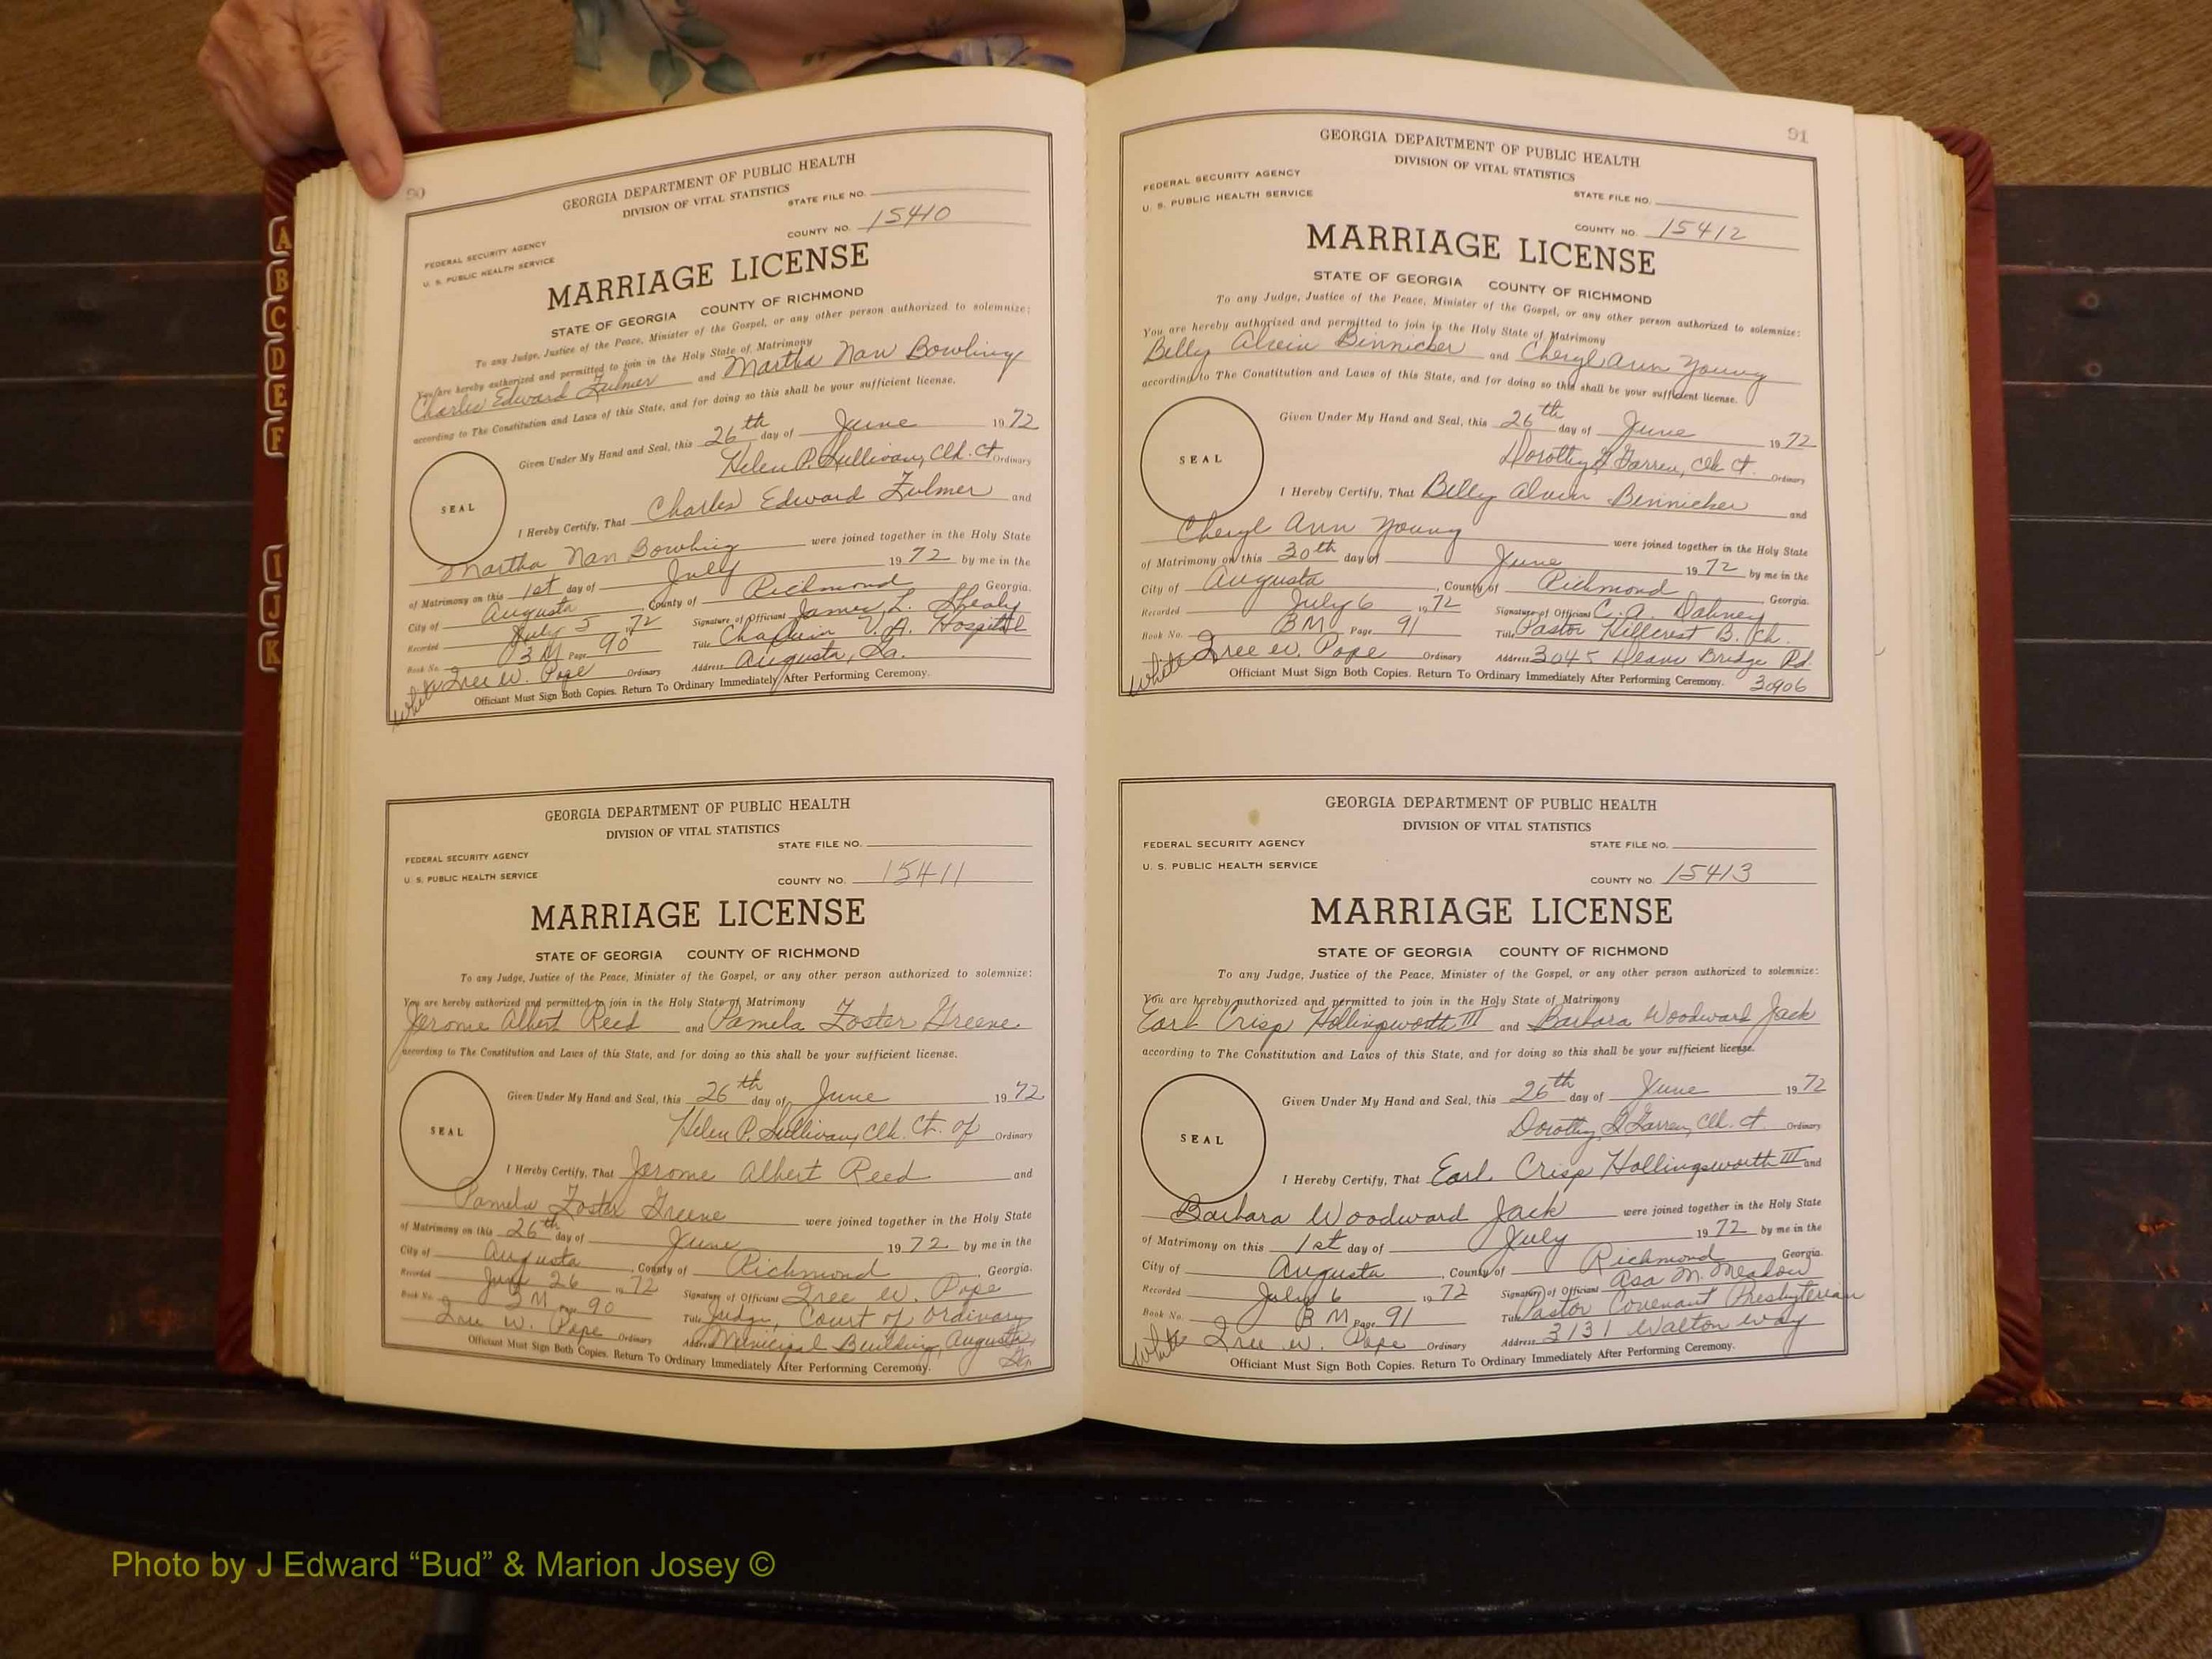 A
B
C
D
E
F
I
J
K
90
GEORGIA DEPARTMENT OF PUBLIC HEALTH
DIVISION OF VITAL STATISTICS
STATE FILE NO.
FEDERAL SECURITY AGENCY
U. S. PUBLIC HEALTH SERVICE
COUNTY NO. 15410
MARRIAGE LICENSE
STATE OF GEORGIA COUNTY OF RICHMOND
To any Judge, Justice of the Peace, Minister of the Gospel, or any other person authorized to solemnize:
You are hereby authorized and permitted to join in the Holy State of Matrimony
Charles Edward Fulmer and Martha Nan Bowling
according to The Constitution and Laws of this State, and for doing so this shall be your sufficient license.
Given Under My Hand and Seal, this 26th day of June 1972
Helen P. Sullivan, Clk. Ct. Ordinary
SEAL
I Hereby Certify, That Charles Edward Fulmer and
Martha Nan Bowling were joined together in the Holy State
of Matrimony on this 1st day of July 1972 by me in the
City of Augusta, County of Richmond Georgia.
Recorded July 5 1972 Signature of Officiant James L. Shealy
Book No. 3M Page 90 Title Chaplain V.A. Hospital
White Iree W. Pope Ordinary Address Augusta, Ga.
Officiant Must Sign Both Copies. Return To Ordinary Immediately After Performing Ceremony.
GEORGIA DEPARTMENT OF PUBLIC HEALTH
DIVISION OF VITAL STATISTICS
STATE FILE NO.
FEDERAL SECURITY AGENCY
U. S. PUBLIC HEALTH SERVICE
COUNTY NO. 15411
MARRIAGE LICENSE
STATE OF GEORGIA COUNTY OF RICHMOND
To any Judge, Justice of the Peace, Minister of the Gospel, or any other person authorized to solemnize:
You are hereby authorized and permitted to join in the Holy State of Matrimony
Jerome Albert Reed and Pamela Foster Greene
according to The Constitution and Laws of this State, and for doing so this shall be your sufficient license.
Given Under My Hand and Seal, this 26th day of June 1972
Helen P. Sullivan, Clk. Ct. of Ordinary
SEAL
I Hereby Certify, That Jerome Albert Reed and
Pamela Foster Greene were joined together in the Holy State
of Matrimony on this 26th day of June 1972 by me in the
City of Augusta, County of Richmond, Georgia.
Recorded June 26 1972 Signature of Officiant Iree W. Pope
Book No. 3M Page 90 Title Judge, Court of Ordinary
Iree W. Pope Ordinary Address Municipal Building, Augusta,
Ga.
Officiant Must Sign Both Copies. Return To Ordinary Immediately After Performing Ceremony.
91
GEORGIA DEPARTMENT OF PUBLIC HEALTH
DIVISION OF VITAL STATISTICS
FEDERAL SECURITY AGENCY
U. S. PUBLIC HEALTH SERVICE
STATE FILE NO.
COUNTY NO. 15412
MARRIAGE LICENSE
STATE OF GEORGIA COUNTY OF RICHMOND
To any Judge, Justice of the Peace, Minister of the Gospel, or any other person authorized to solemnize:
You are hereby authorized and permitted to join in the Holy State of Matrimony
Billy Alvin Binnicker and Cheryl Ann Young
according to The Constitution and Laws of this State, and for doing so this shall be your sufficient license.
Given Under My Hand and Seal, this 26th day of June 1972
Dorothy Clk Ct. Ordinary
SEAL
I Hereby Certify, That Billy Alvin Binnicker and
Cheryl Ann Young were joined together in the Holy State
of Matrimony on this 30th day of June 1972 by me in the
City of Augusta, County of Richmond, Georgia.
Recorded July 6 1972 Signature of Officiant C. A. Dabney
Book No. 3M Page 91 Title Pastor Hillcrest B. Ch.
White Iree W. Pope Ordinary Address 3045 Deans Bridge Rd.
30906
Officiant Must Sign Both Copies. Return To Ordinary Immediately After Performing Ceremony.
GEORGIA DEPARTMENT OF PUBLIC HEALTH
DIVISION OF VITAL STATISTICS
FEDERAL SECURITY AGENCY
STATE FILE NO.
U. S. PUBLIC HEALTH SERVICE
COUNTY NO. 15413
MARRIAGE LICENSE
STATE OF GEORGIA COUNTY OF RICHMOND
To any Judge, Justice of the Peace, Minister of the Gospel, or any other person authorized to solemnize:
You are hereby authorized and permitted to join in the Holy State of Matrimony
Earl Crisp Hollingsworth III and Barbara Woodward Jack
according to The Constitution and Laws of this State, and for doing so this shall be your sufficient license.
Given Under My Hand and Seal, this 26th day of June 1972
Dorothy Clk. Ct. Ordinary
SEAL
I Hereby Certify, That Earl Crisp Hollingsworth III and
Barbara Woodward Jack were joined together in the Holy State
of Matrimony on this 1st day of July 1972 by me in the
City of Augusta, County of Richmond, Georgia.
Recorded July 6 1972 Signature of Officiant Asa M. Meadow
Book No. 3M Page 91 Title Pastor Covenant Presbyterian
White Iree W. Pope Ordinary Address 3131 Walton Way
Officiant Must Sign Both Copies. Return To Ordinary Immediately After Performing Ceremony.
Photo by J Edward “Bud” & Marion Josey ©